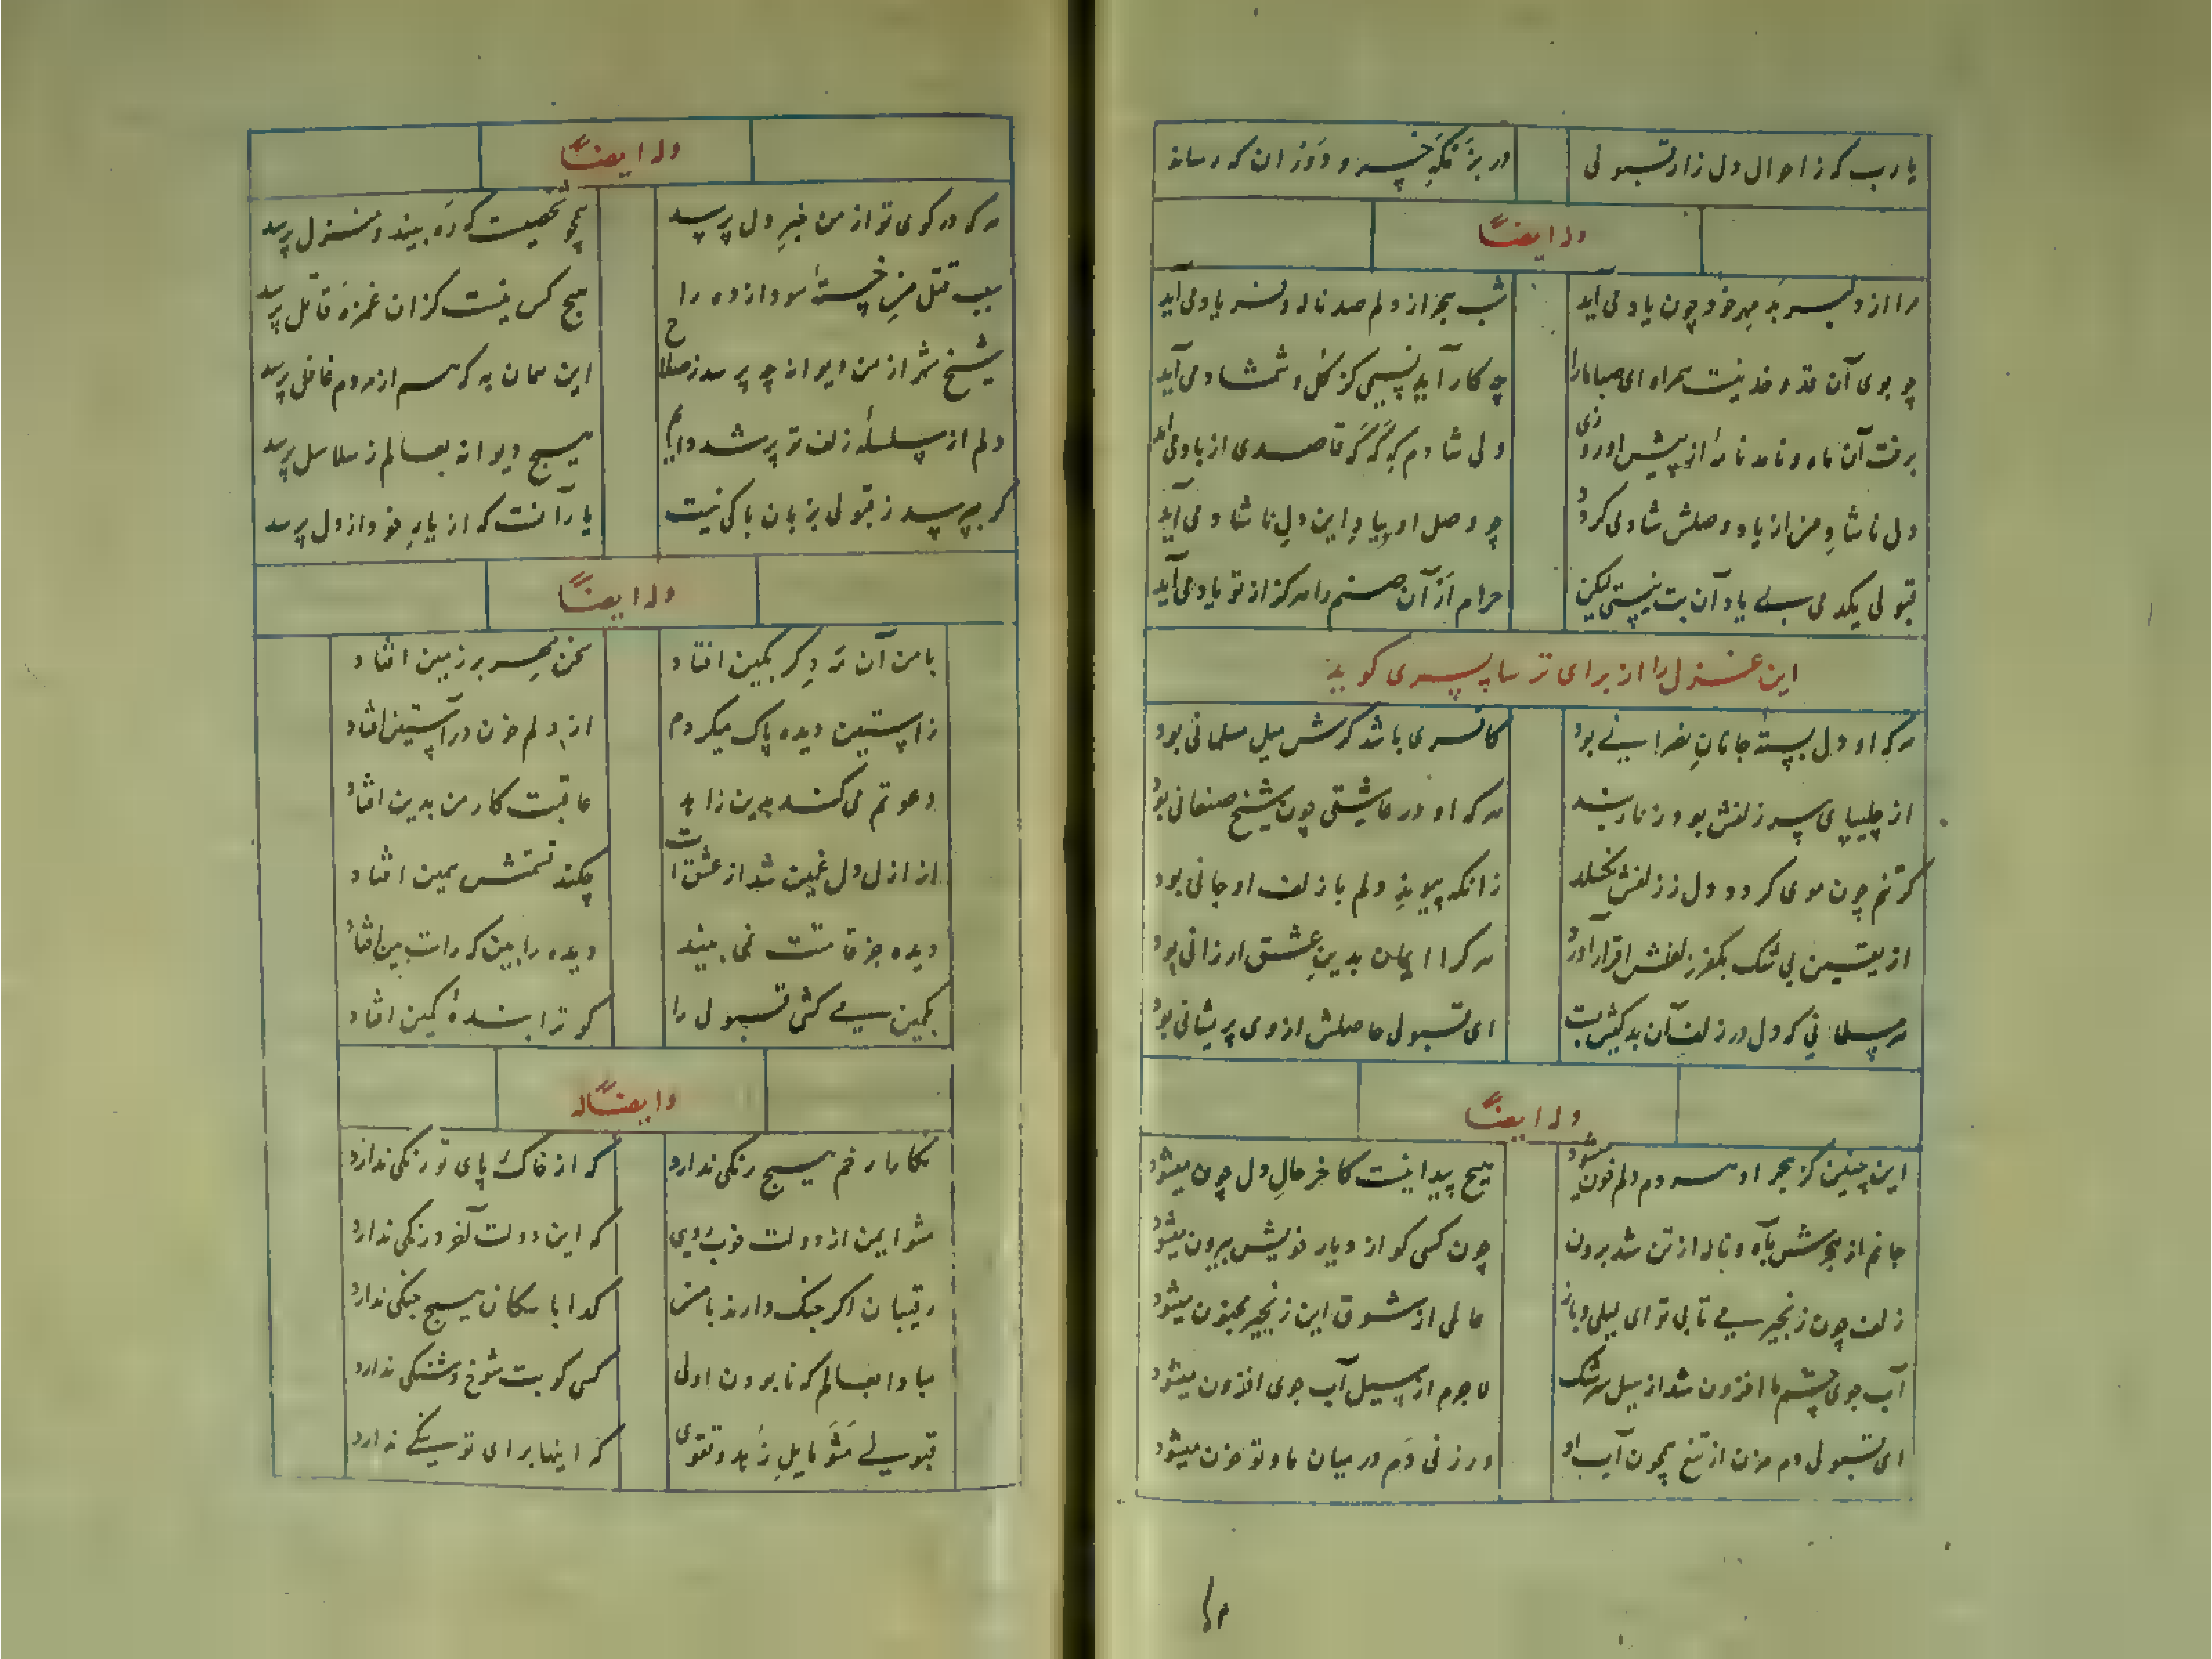 یارب که ز احوال دل زار قبولی
در بزمگه خسرو دوران که رساند
وله ایضاً
مرا از دلبر بد مهر خود چون یاد می آید
شب هجر از دلم صد ناله و فریاد می آید
چو بوی آن قد و خد نیست همراه ای صبا ما را
چه کار آید نسیمی کز گل و شمشاد می آید
برفت آن ماه و نامد نامهٔ از پیش او روزی
ولی شادم که گه گه قاصدی از باد می آید
دل ناشاد من از یاد وصلش شاد می کردد
چو وصل او بیاد این دل ناشاد می آید
قبولی یکدمی بی یاد آن بت نیستی لیکن
حرام ار آن صنم را هرکز از تو یاد می آید
این غزل را از برای ترسا پسری کوید
هرکه او دل بستهٔ جانان نصرانی بود
کافری باشد کرش میل مسلمانی بود
از چلیپای سر زلفش بود زنار بند
هرکه او در عاشقی چون شیخ صنعانی بود
کر تنم چون موی کردد دل ز زلفش نکسلد
زانکه پیوند دلم با زلف او جانی بود
از یقین بی شک بکفر زلفش اقرار آورد
هرکرا ایمان بدین عشق ارزانی بود
هر مسلمانی که دل در زلف آن بدکیش بست
ای قبولی حاصلش از وی پریشانی بود
وله ایضاً
این چنین کز هجر او هر دم دلم خون میشود
هیچ پیدا نیست کاخر حال دل چون میشود
جانم از هجرش بآه و ناله از تن شد برون
چون کسی کو از دیار خویش بیرون میشود
زلف چون زنجیر می تابی تو ای لیلی و باز
عالمی از شوق این زنجیر مجنون میشود
آب جوی چشم ما افزون شد از سیل سرشک
لاجرم از سیل آب جوی افزون میشود
ای قبولی دم مزن از تیغ همچون آب او
ور زنی دم در میان ما و تو خون میشود
وله ایضاً
هرکه در کوی تو از من خبر دل پرسد
همچو شخصیست که ره بیند و منزل پرسد
سبب قتل من خستهٔ سودازده را
هیچ کس نیست کزان غمزهٔ قاتل پرسد
شیخ شهر از من دیوانه چه پرسد ز صلاح
این همان به که هم از مردم غافل پرسد
دلم از سلسلهٔ زلف تو پرسد دایم
هیچ دیوانه بعالم ز سلاسل پرسد
کر بپرسد ز قبولی بزبان باکی نیست
یار آنست که از یار خود از دل پرسد
وله ایضاً
با من آن مه دکر بکین افتاد
سخن مهر بر زمین افتاد
ز استین دیده پاک میکردم
از دلم خون در آستین افتاد
دعوتم می کند بدین زاهد
عاقبت کار من بدین افتاد
از ازل دل غمین شد از عشقت
چکند قسمتش همین افتاد
دیده جز قامتت نمی بیند
دیده را بین که راست بین افتاد
بکمین می کشی قبولی را
کو ترا بندهٔ کمین افتاد
وله ایضاً
نکارا رخم هیچ رنکی ندارد
که از خاک پای تو رنکی ندارد
مشو ایمن از دولت خوب رویی
که این دولت آخر درنکی ندارد
رقیبان اکر جنک دارند با من
کدا با سکان هیچ جنکی ندارد
مبادا بعالم که نابودن اولی
کسی کو بت شوخ و شنکی ندارد
قبولی مشو مایل زهد و تقوی
که اینها برای تو سنکی ندارد